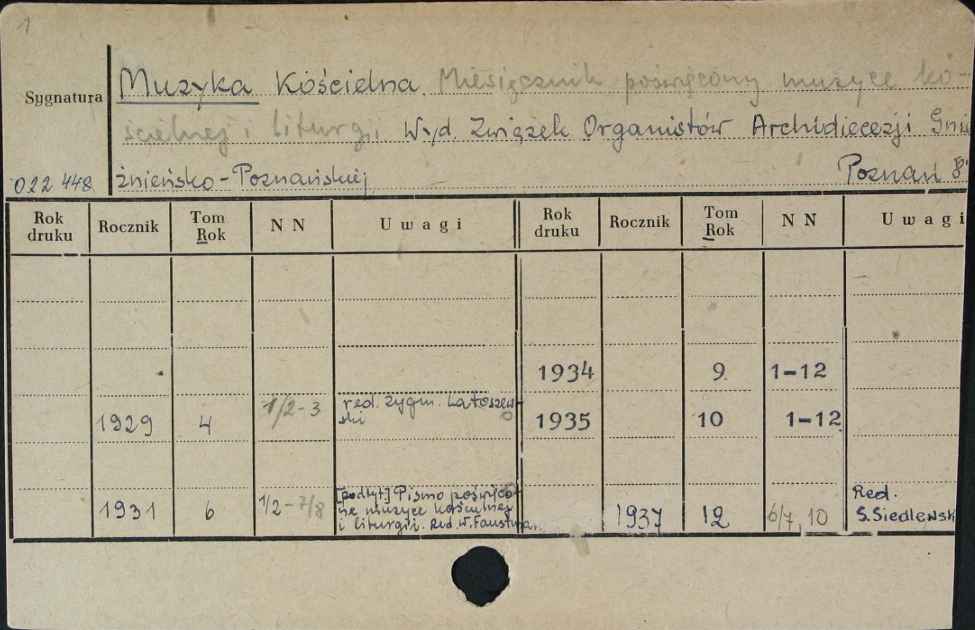 1
Sygnatura
Muzyka Kościelna. Miesięcznik poświęcony muzyce ko-
ścielnej i liturgji Wyd. Związek Organistów Archidiecezji Gnie
022 448 źnieńsko-Poznańskiej Poznań
Rok druku Rocznik Tom Rok N N Uwagi Rok druku Rocznik Tom Rok N N Uwagi
1934 9. 1-12
1929 4 1/2-3 red. Zygm. Latoszew-
ski
1935 10 1-12
1931 6 1/2-7/8 [podtyt] Pismo poświęco-
ne muzyce kościelnej
i liturgji. Red. W. Faustma.
1937 12 6/7, 10 Red.
S. Siedlewsk